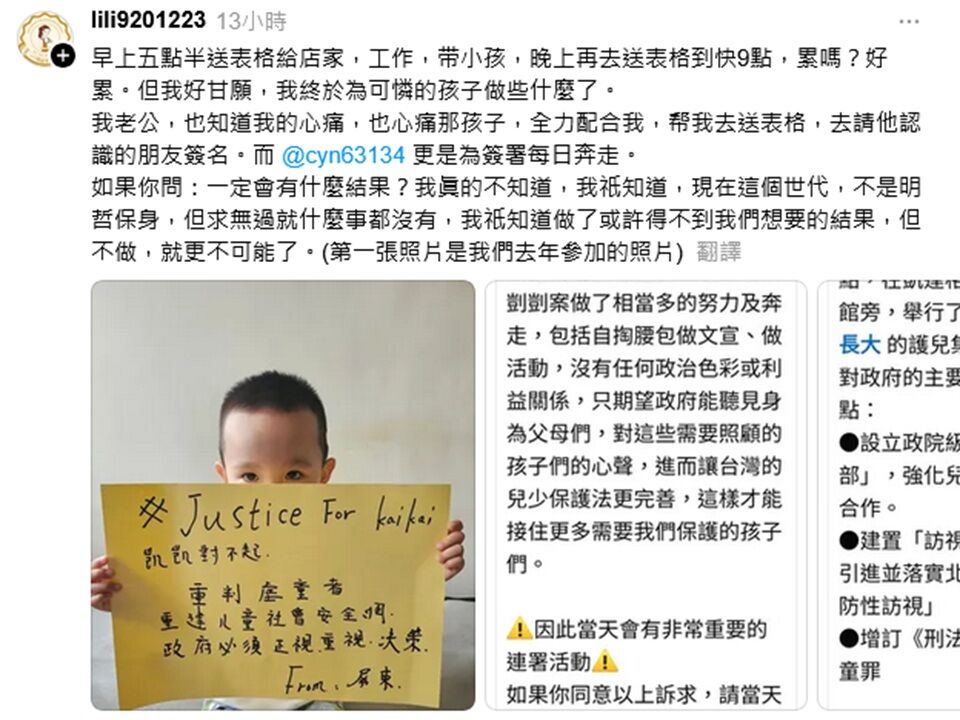 lili9201223 13小時
早上五點半送表格給店家，工作，带小孩，晚上再去送表格到快9點，累嗎？好
累。但我好甘願，我終於為可憐的孩子做些什麼了。
我老公，也知道我的心痛，也心痛那孩子，全力配合我，帮我去送表格，去請他認
識的朋友簽名。而 @cyn63134 更是為簽署每日奔走。
如果你問：一定會有什麼結果？我真的不知道，我祇知道，現在這個世代，不是明
哲保身，但求無過就什麼事都沒有，我祇知道做了或許得不到我們想要的結果，但
不做，就更不可能了。(第一張照片是我們去年參加的照片) 翻譯
# Justice For kaikai
凱凱對不起.
重判虐童者
重建儿童社會安全網.
政府必須正視.重視.决策.
From. 屏東.
剴剴案做了相當多的努力及奔
走，包括自掏腰包做文宣、做
活動，沒有任何政治色彩或利
益關係，只期望政府能聽見身
為父母們，對這些需要照顧的
孩子們的心聲，進而讓台灣的
兒少保護法更完善，這樣才能
接住更多需要我們保護的孩子
們。
⚠️因此當天會有非常重要的
連署活動⚠️
如果你同意以上訴求，請當天
館旁，舉行了
長大 的護兒集
對政府的主要
點：
●設立政院級
部」，強化兒
合作。
●建置「訪視
引進並落實北
防性訪視」
●增訂《刑法
童罪